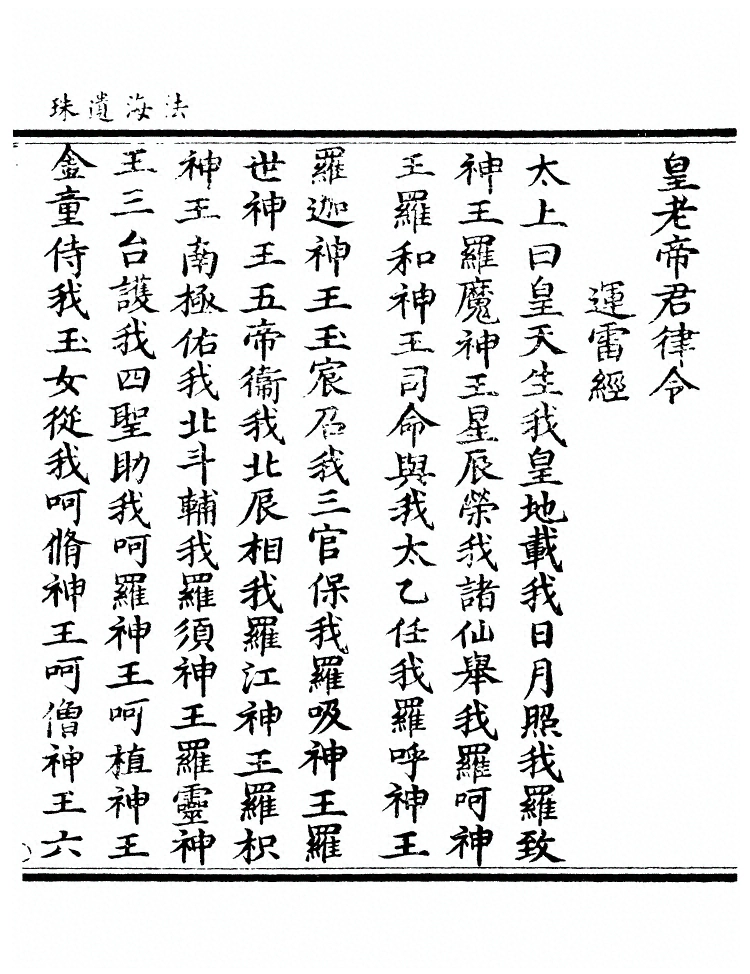 法海遺珠
皇老帝君律令
運雷經
太上曰皇天生我皇地載我日月照我羅致
神王羅魔神王星辰榮我諸仙舉我羅呵神
王羅和神王司命與我太乙任我羅呼神王
羅迦神王玉宸召我三官保我羅吸神王羅
世神王五帝衞我北辰相我羅江神王羅枳
神王南極佑我北斗輔我羅須神王羅靈神
王三台護我四聖助我呵羅神王呵植神王
金童侍我玉女從我呵脩神王呵僧神王六